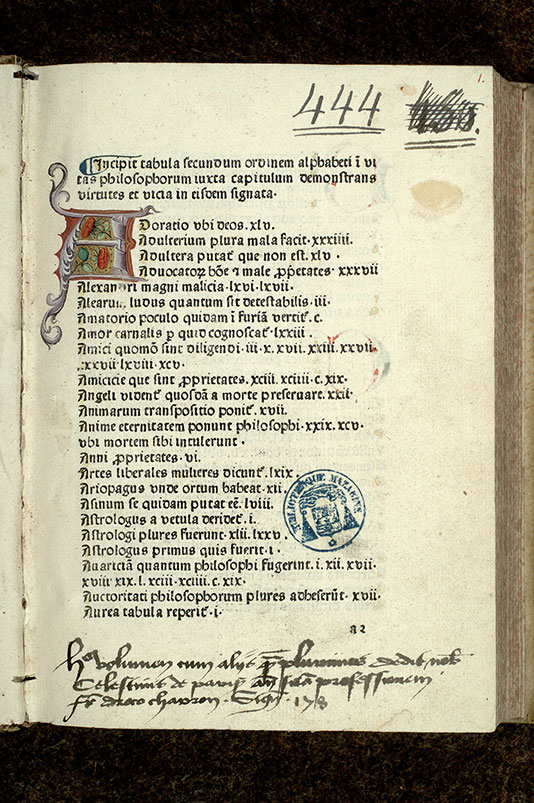 444
1.
Incipit tabula secundum ordinem alphabeti ĩ vi
tas philosophorum iuxta capitulum demonstrans
virtutes et vicia in eisdem signata·
Adoratio vbi deos. xlv.
Adulterium plura mala facit· xxxiiii.
Adultera putat̃ que non est. xlv .
Aduocatoꝝ bõe ⁊ male ꝓp̃etates· xxxvii
Alexandri magni malicia .lxvi .lxvii.
Alearum ludus quantum sit detestabilis .iii.
Amatorio poculo quidam ĩ furiã vertit̃. c.
Amor carnalis ꝑ quid cognoscat̃ .lxxiii .
Amici quomõ sint diligendi ·iii· x. xvii. xxiii. xxvii·
xxvii· lxviii· xcv.
Amicicie que sint ꝓprietates. xciii. xciiii· c. xix·
Angeli vident̃ quosdã a morte preseruare. xxii·
Animarum transpositio ponit̃. xvii.
Anime eternitatem ponunt philosophi· xxix. xcv·
vbi mortem sibi intulerunt .
Anni ꝓprietates. vi.
Artes liberales mulieres dicunt̃. lxix.
Ariopagus vnde ortum habeat· xii.
Asinum se quidam putat eẽ. lviii.
Astrologus a vetula deridet̃. i.
Astrologi plures fuerunt· xlii. lxxv .
Astrologus primus quis fuerit· i .
Auariciã quantum philosophi fugerint. i. xii. xvii.
xviii xix. l. xciii· xciiii. c. xix.
Auctoritati philosophorum plures adheserũt· xvii.
Aurea tabula reperit̃ .i.
a2
BIBLIOTHEQUE MAZARINE
volumen cum alijs plurimis dedit nob̃
Celestinis de professionem
fr̃ droco chapron . Sign̄ 178